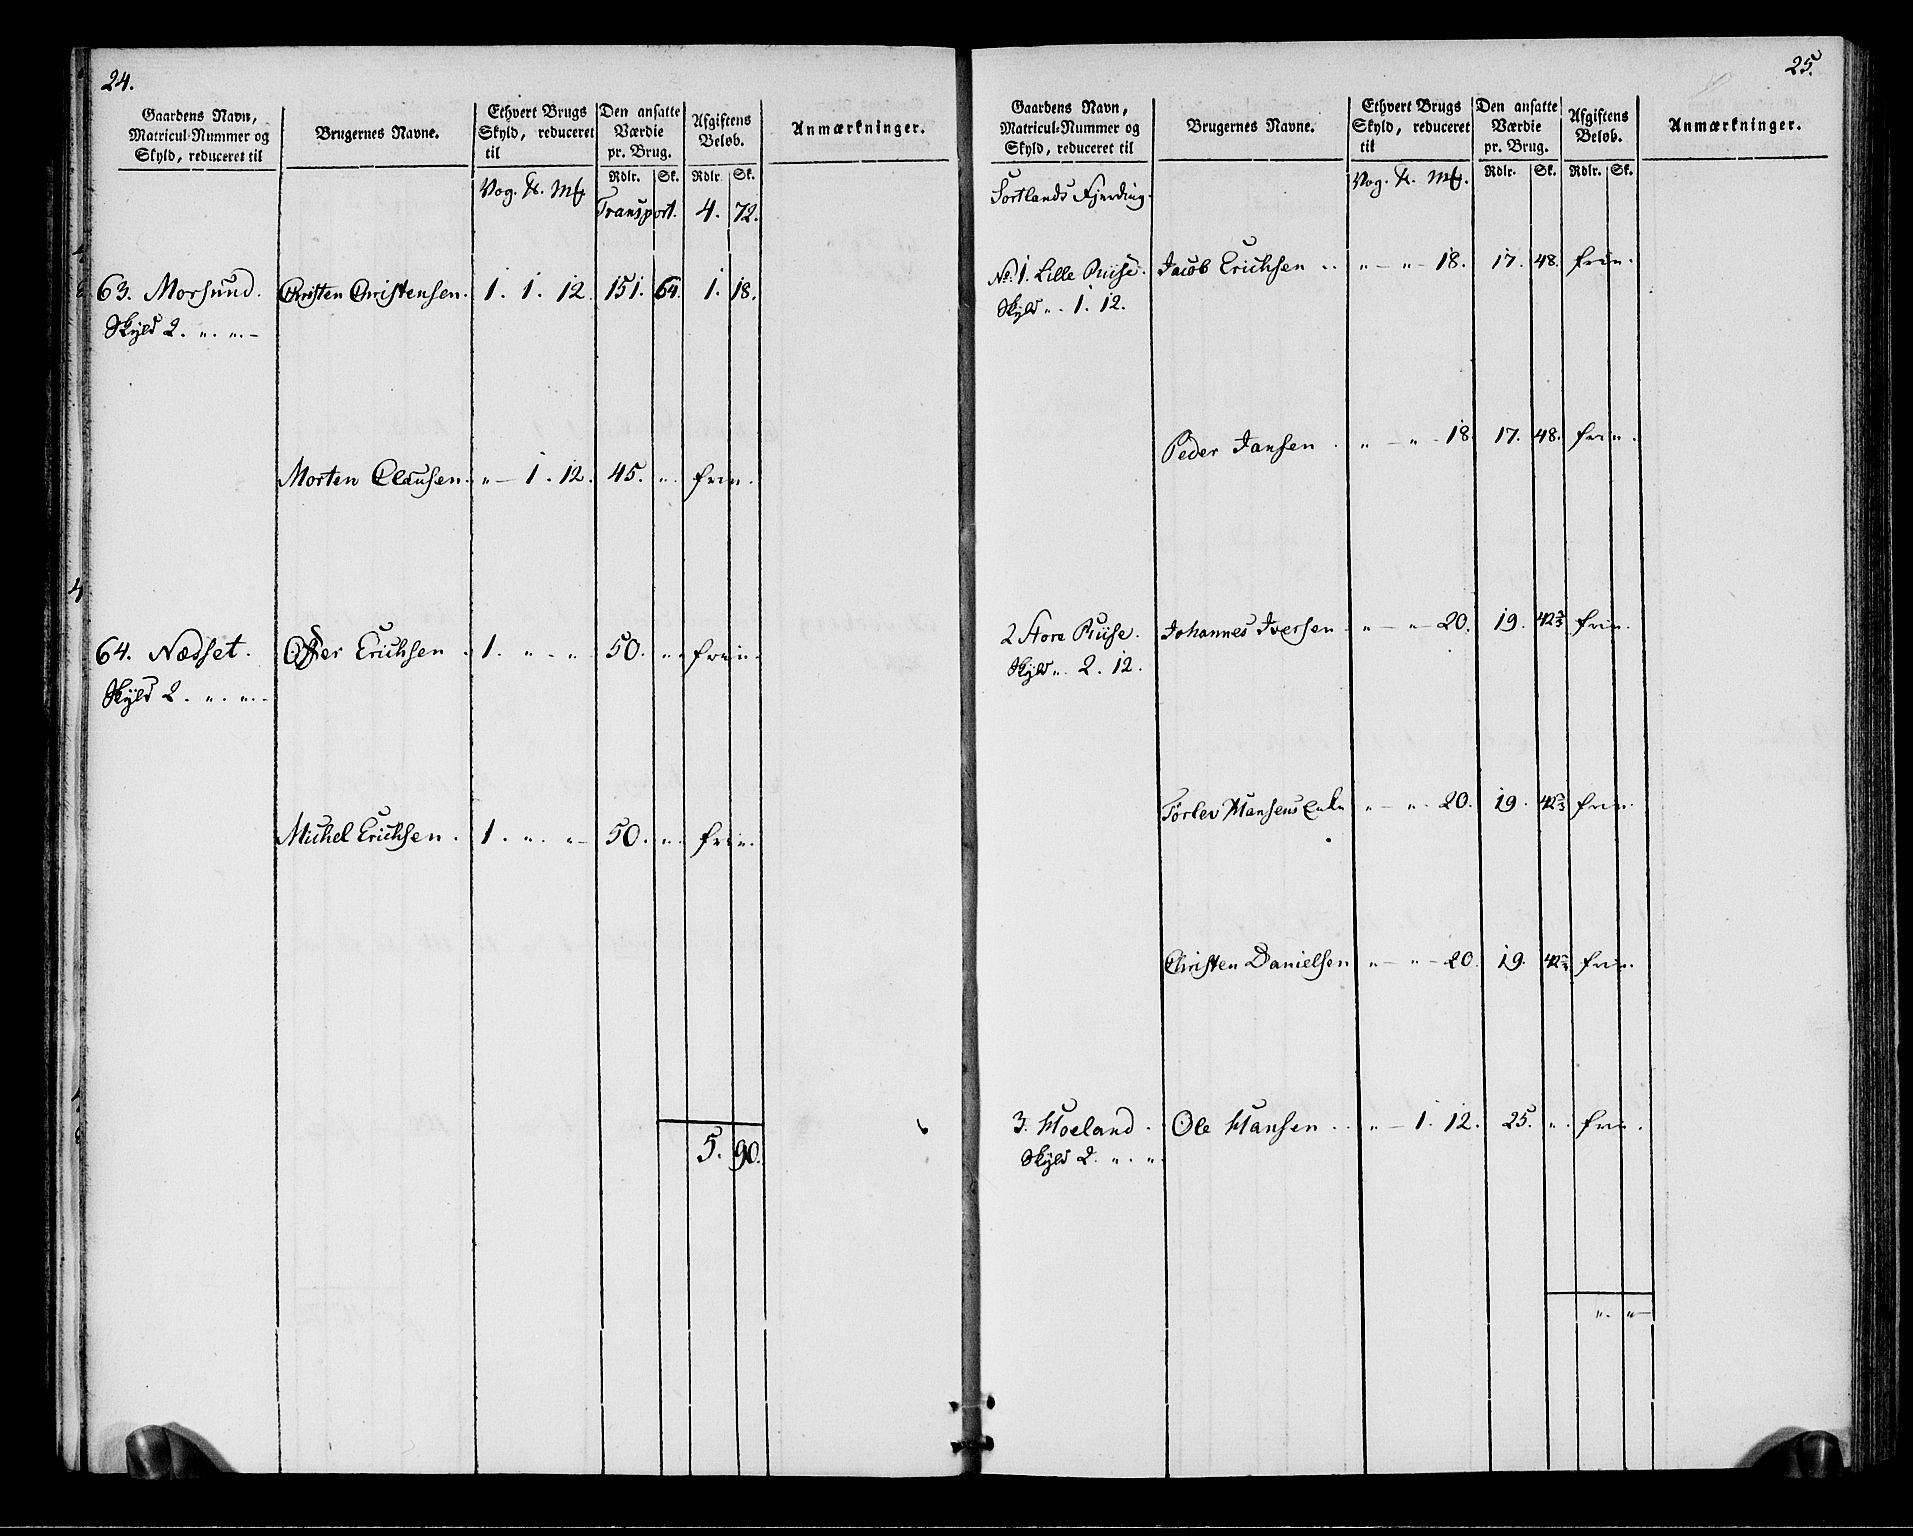 24.
Gaardens Navn, Matricul-Nummer og Skyld, reduceret til
Brugernes Navne.
Ethvert Brugs Skyld, reduceret til
Den ansatte Værdie pr. Brug.
Afgiftens Beløb.
Anmærkninger.
Rdlr. Sk. Rdlr. Sk.
Vog. Mk
Transport. 4. 72.
63. Morsund. Christen Christensen. 1. 1. 12. 151. 64. 1. 18.
Skyld 2. „. „. –
Morten Clausen. „ – 1. 12. 45. „. frie.
64. Nædset. Offer Erichsen . 1. „ – „ 50. „. frie.
Skyld 2. „. „. –
Michel Erichsen . 1. „. „ – 50. „. frie.
5. 90.
25.
Gaardens Navn, Matricul-Nummer og Skyld, reduceret til
Brugernes Navne.
Ethvert Brugs Skyld, reduceret til
Den ansatte Værdie pr. Brug.
Afgiftens Beløb.
Anmærkninger.
Rdlr. Sk. Rdlr. Sk.
Vog. Mk.
Sortlands Fjerding.
No. 1. Lille Riise. Jacob Erichsen . . „ – „ – 18. 17. 48. frie.
Skyld „. 1. 12.
Peder Jansen . „ – „ – 18. 17. 48. frie.
2 Store Riise. Johannes Iversen . „ – „ – 20. 19. 42⅔ frie.
Skyld „. 2. 12.
Torlev Hansens Enke „ – „. 20. 19. 42⅔ frie.
Christen Danielsen „ – „ – 20. 19. 42⅔ frie.
3. Hoeland. Ole Hansen . . „ – 1. 12. 25. „. frie.
Skyld 2. „. „.
„. „ –